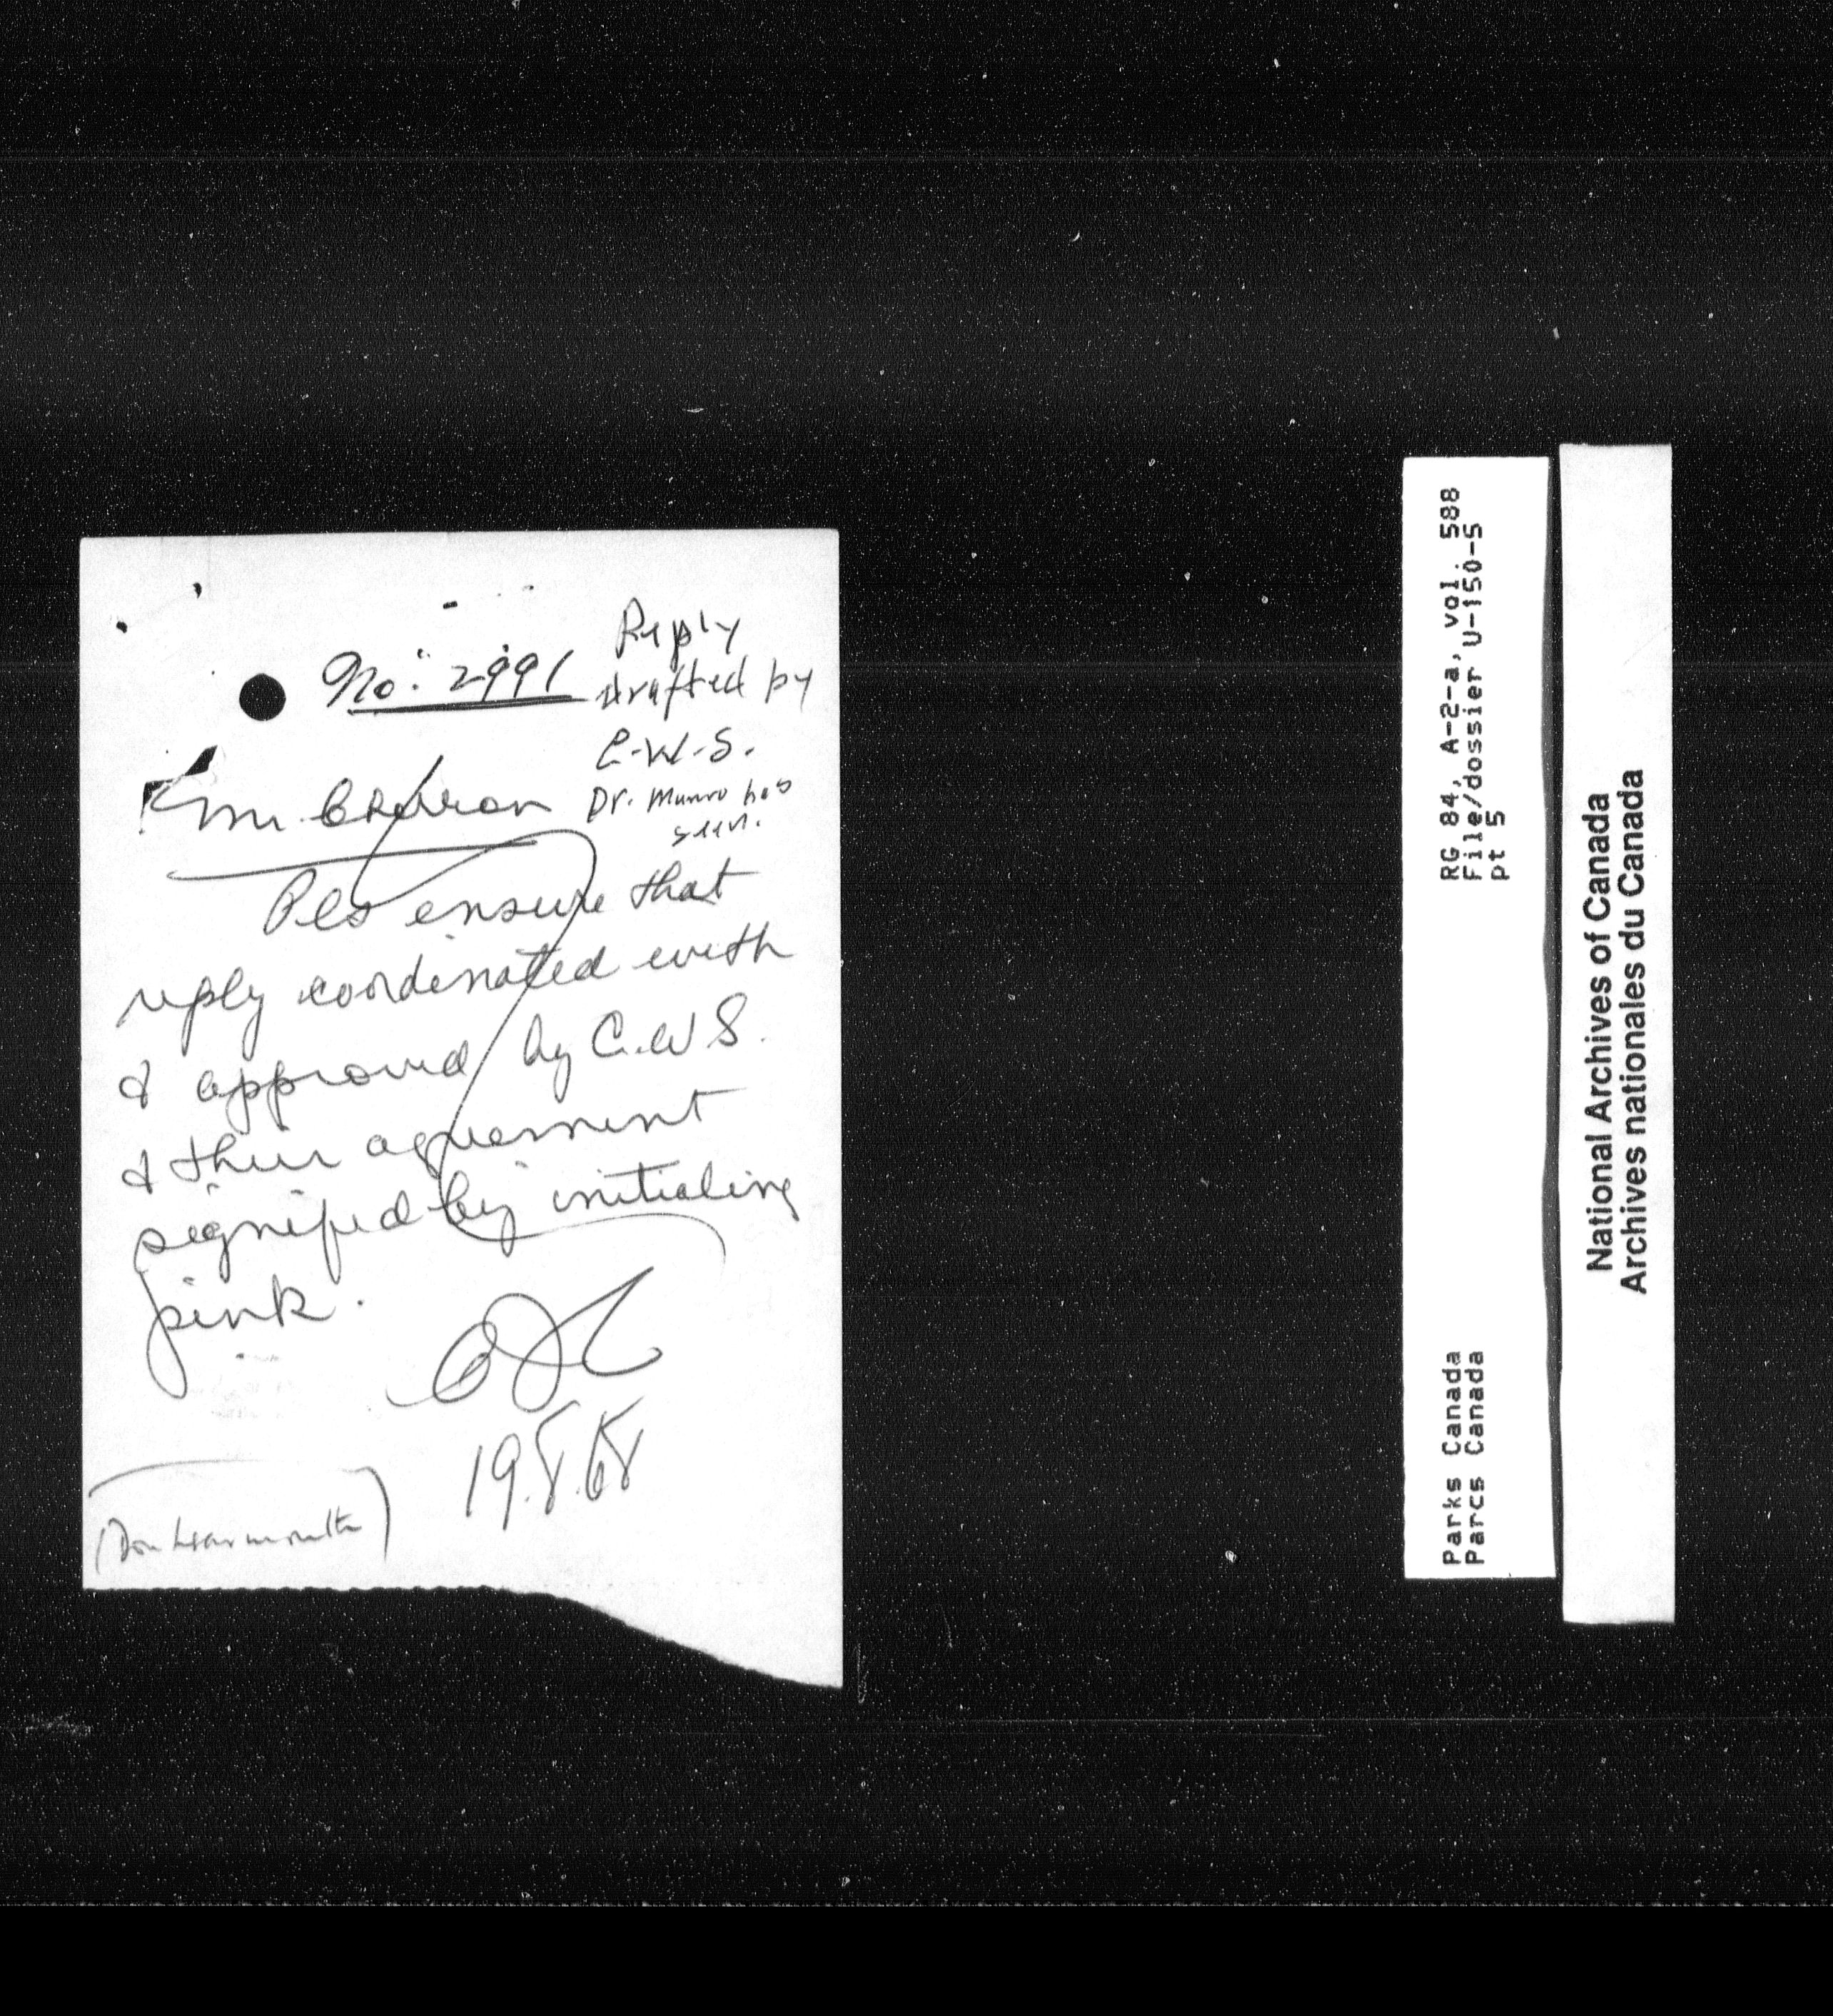 No. 2991
Reply
drafted by
C.W.S.
Dr. Munro has
seen.
Mr.
Pls ensure that
reply coordinated with
& approved by C.W.S.
& their agreement
signified by initialing
pink.
19.8.68
(Don Learmonth)
RG 84, A-2-a, vol. 588
File/dossier U-150-5
pt 5
Parks Canada
Parcs Canada
National Archives of Canada
Archives nationales du Canada